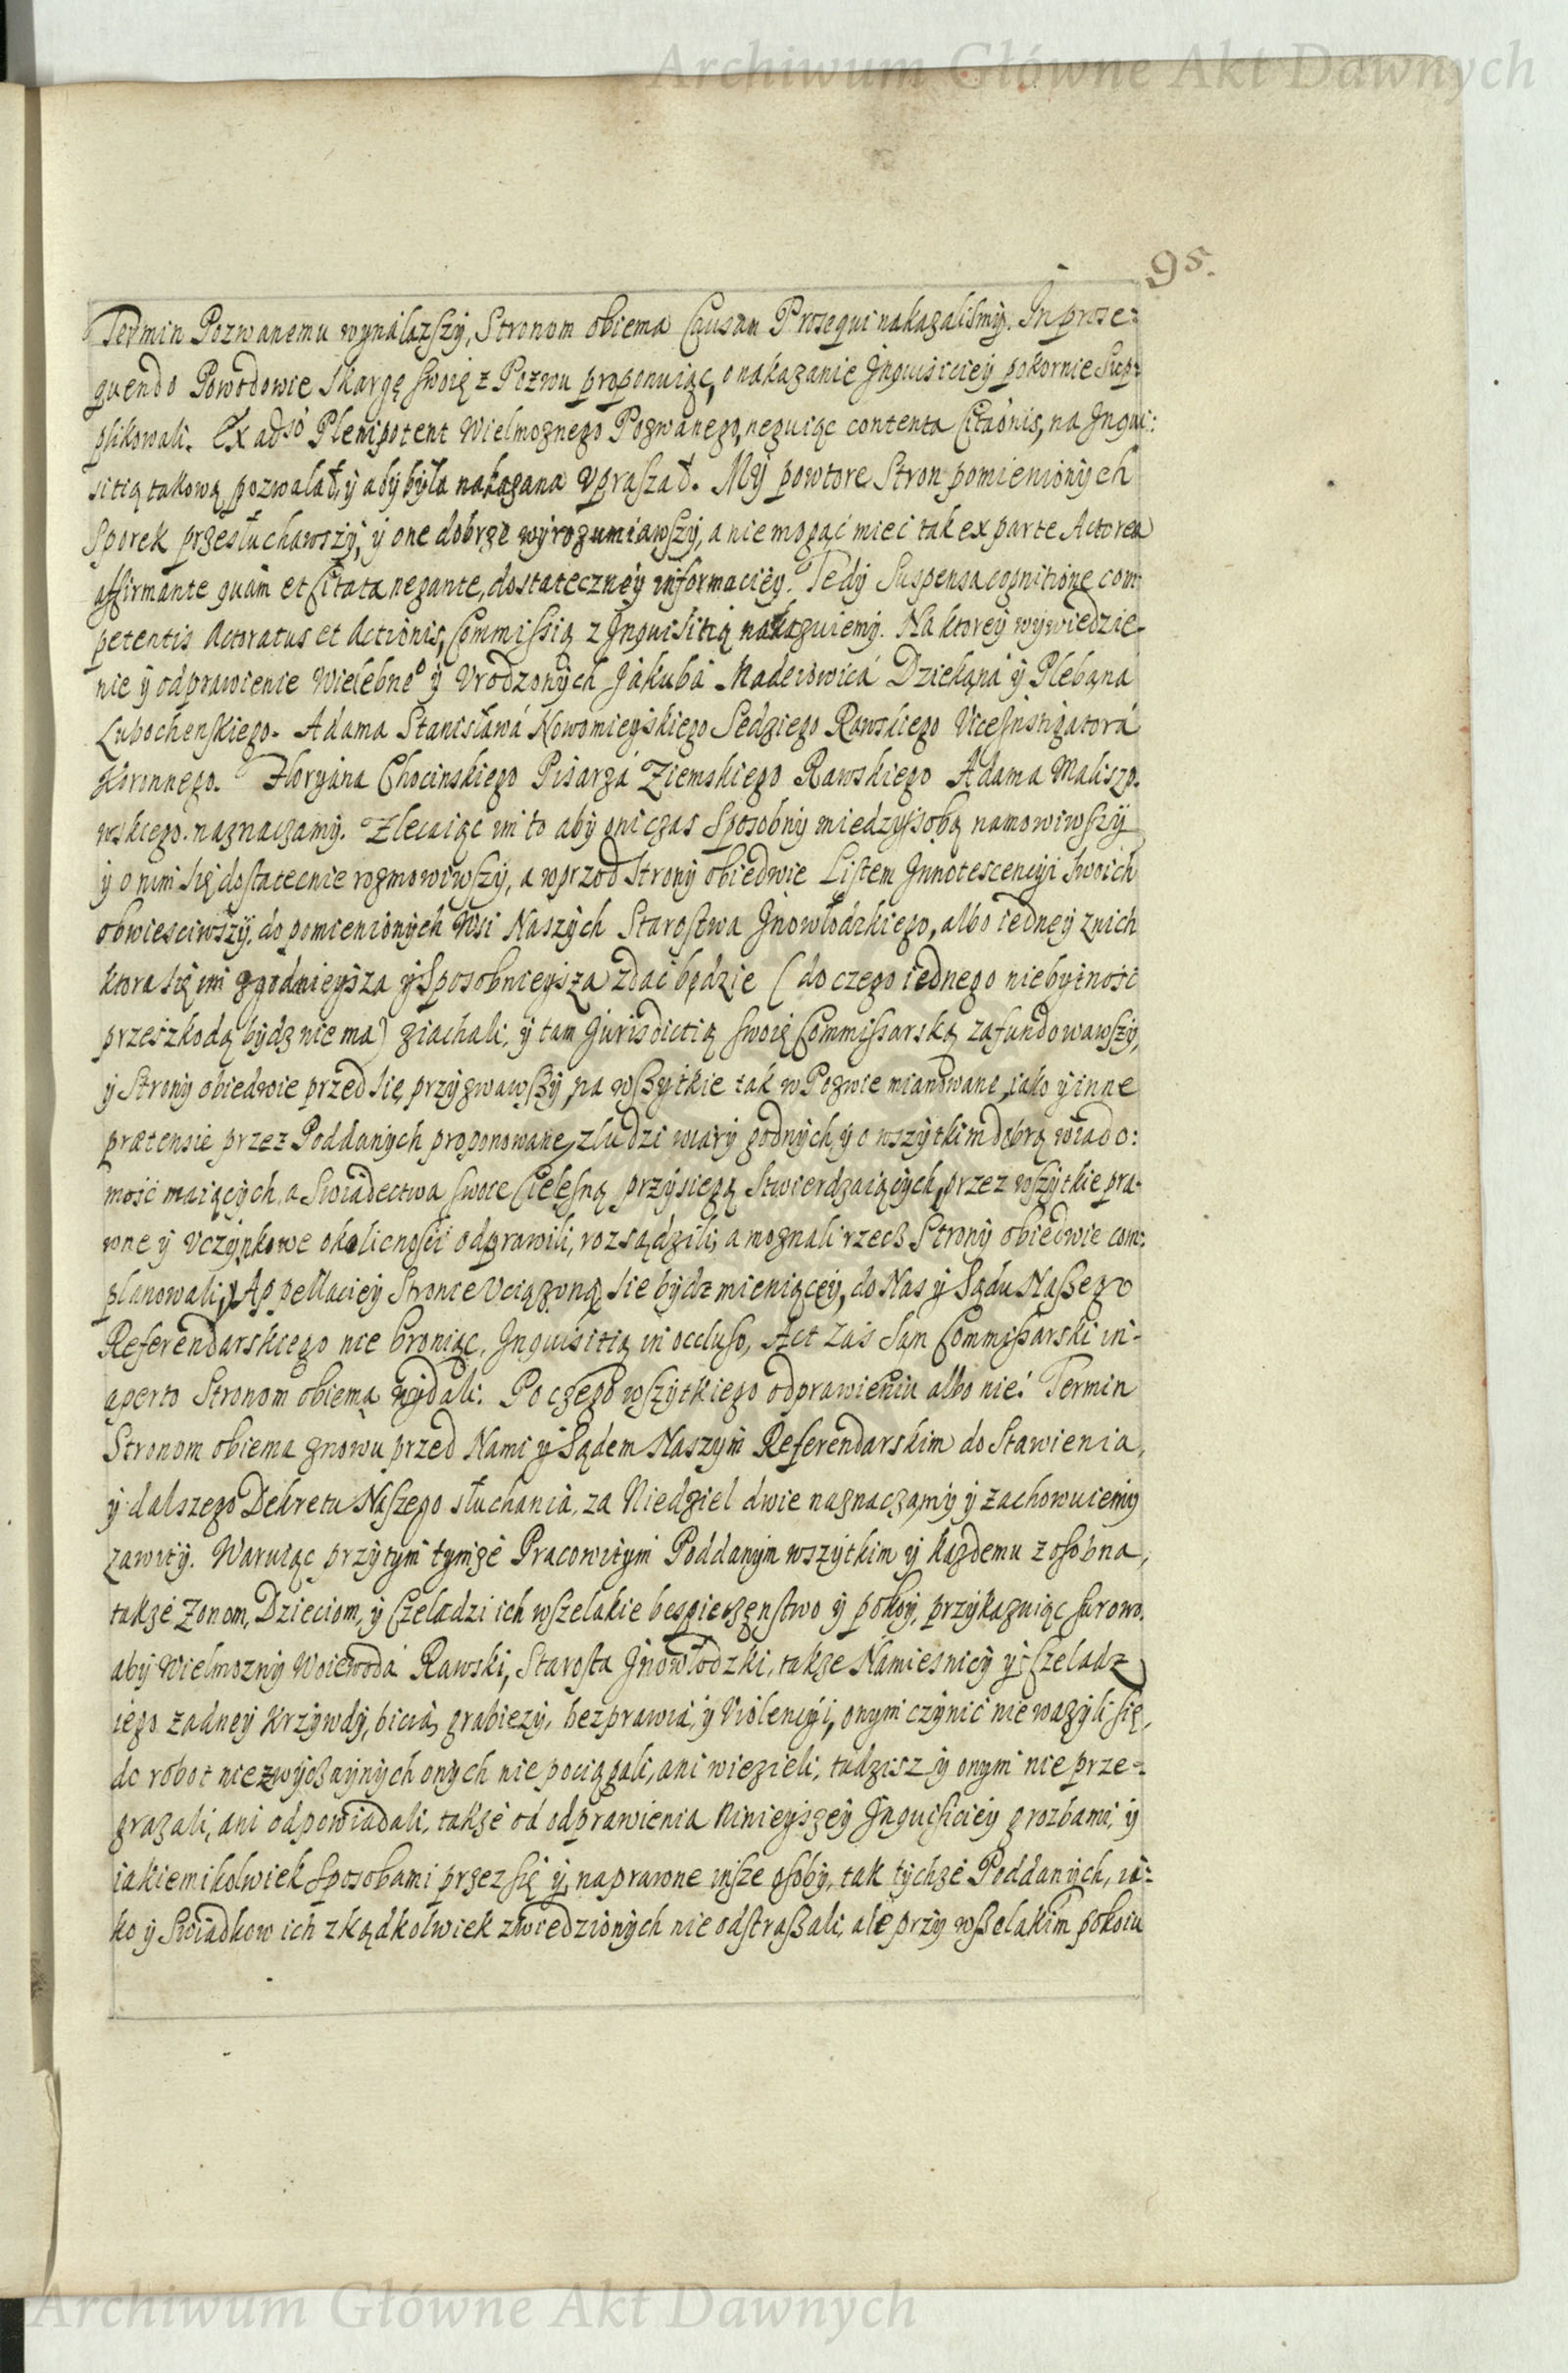 Archiwum Główne Akt Dawnych
95.
Termin Pozwanemu wynalazszy, Stronom obiema Causam Prosequi nakazalismy. In prose:
quendo Powodowie skargę swoię z Pozwu proponuiąc, o nakazanie Inquisiciey pokornie Sup:
plikowali. Ex adso Plenipotent Wielmoznego Pozwanego, neguiąc contenta Citaonis, na Inqui:
sitią takową pozwalał, y aby była nakazana vpraszał. My powtore Stron pomienionych
Sporek przesłuchawszy, y one dobrze wyrozumiawszy, a nie mogąc miec tak ex parte Actorea
affirmante quam et Citata negante, dostateczney informaciey. Tedy Suspensa cognitione com:
petentis Actoratus et Actionis, Commissią z Inquisitią nakazuiemy. Na ktorey wywiedzie-
nie y odprawienie Wielebnego y Vrodzonych Jakuba Maderowica Dziekana y Plebana
Lubochenskiego. Adama Stanisława Nowomieyskiego Sedziego Rawskiego ViceInstigatora
Koronnego. Floryana Chocinskiego Pisarza Ziemskiego Rawskiego Adama Maliszo.
wskiego. naznaczamy. Zlecaiąc im to aby oni czas Sposobny miedzysobą namowiwszy
y o nim się dostatecnie rozmowiwszy, a wprzod Strony obiedwie Listem Innotescencyi swoich
obwiesciwszy, do pomienionych Wsi Naszych Starostwa Inowłodzkiego, albo iedney znich
ktora się im zgodnieysza y Sposobnieysza zdac będzie (do czego iednego niebytnosc
przeszkodą bydz nie ma) ziachali, y tam Jurisdictią swoię Commissarską zafundowawszy,
y Strony obiedwie przed się przyzwawszy, na wszytkie tak w Pozwie mianowane iako y inne
prætensie przez Poddanych proponowane, zludzi wiary godnych, y o wszytkim dobrą wiado:
mość maiących, a Swiadectwa swoie Cielesną przysięgą Stwierdzaiących, przez wszytkie pra-
wne y Vczynkowe okolicnosci odprawili, rozsądzili, a moznali rzecz Strony obiedwie com:
planowali, Appellaciey Stronie Vciązoną sie bydz mieniącey, do Nas y Sądu Naszego
Referendarskiego nie broniąc, Inquisitią in occluso, Act zas sąm Commissarski in-
aperto Stronom obiema wydali. Po czego wszytkiego odprawieniu albo nie: Termin
Stronom obiema znowu przed Nami y Sądem Naszym Referendarskim do Stawienia,
y dalszego Dekretu Naszego słuchania, za Niedziel dwie naznaczamy y zachowuiemy
zawity. Waruiąc przytym tymze Pracowitym Poddanym wszytkim y kazdemu z osobna,
takze Zonom, Dzieciom, y Czeladzi ich wszelakie bespieczenstwo y pokoy, przykazuiąc surowo,
aby Wielmozny Woiewoda Rawski, Starosta Inowłodzki, takze Namiesnicy y Czeladz
iego zadney krzywdy, bicia, grabiezy, bezprawia, y Violencyi, onym czynic nie wazyli się,
do robot niezwyczaynych onych nie pociągali, ani wiezieli, tudziesz y onym nie prze-
grazali, ani odpowiadali, takze od odprawienia Ninieyszey Inquisiciey grozbami, y
iakiemikolwiek Sposobami przez się y naprawne insze osoby, tak tychze Poddanych, ia:
ko y Swiadkow ich zkądkolwiek zwiedzionych nie odstraszali, ale przy wszelakim pokoiu
Archiwum Główne Akt Dawnych